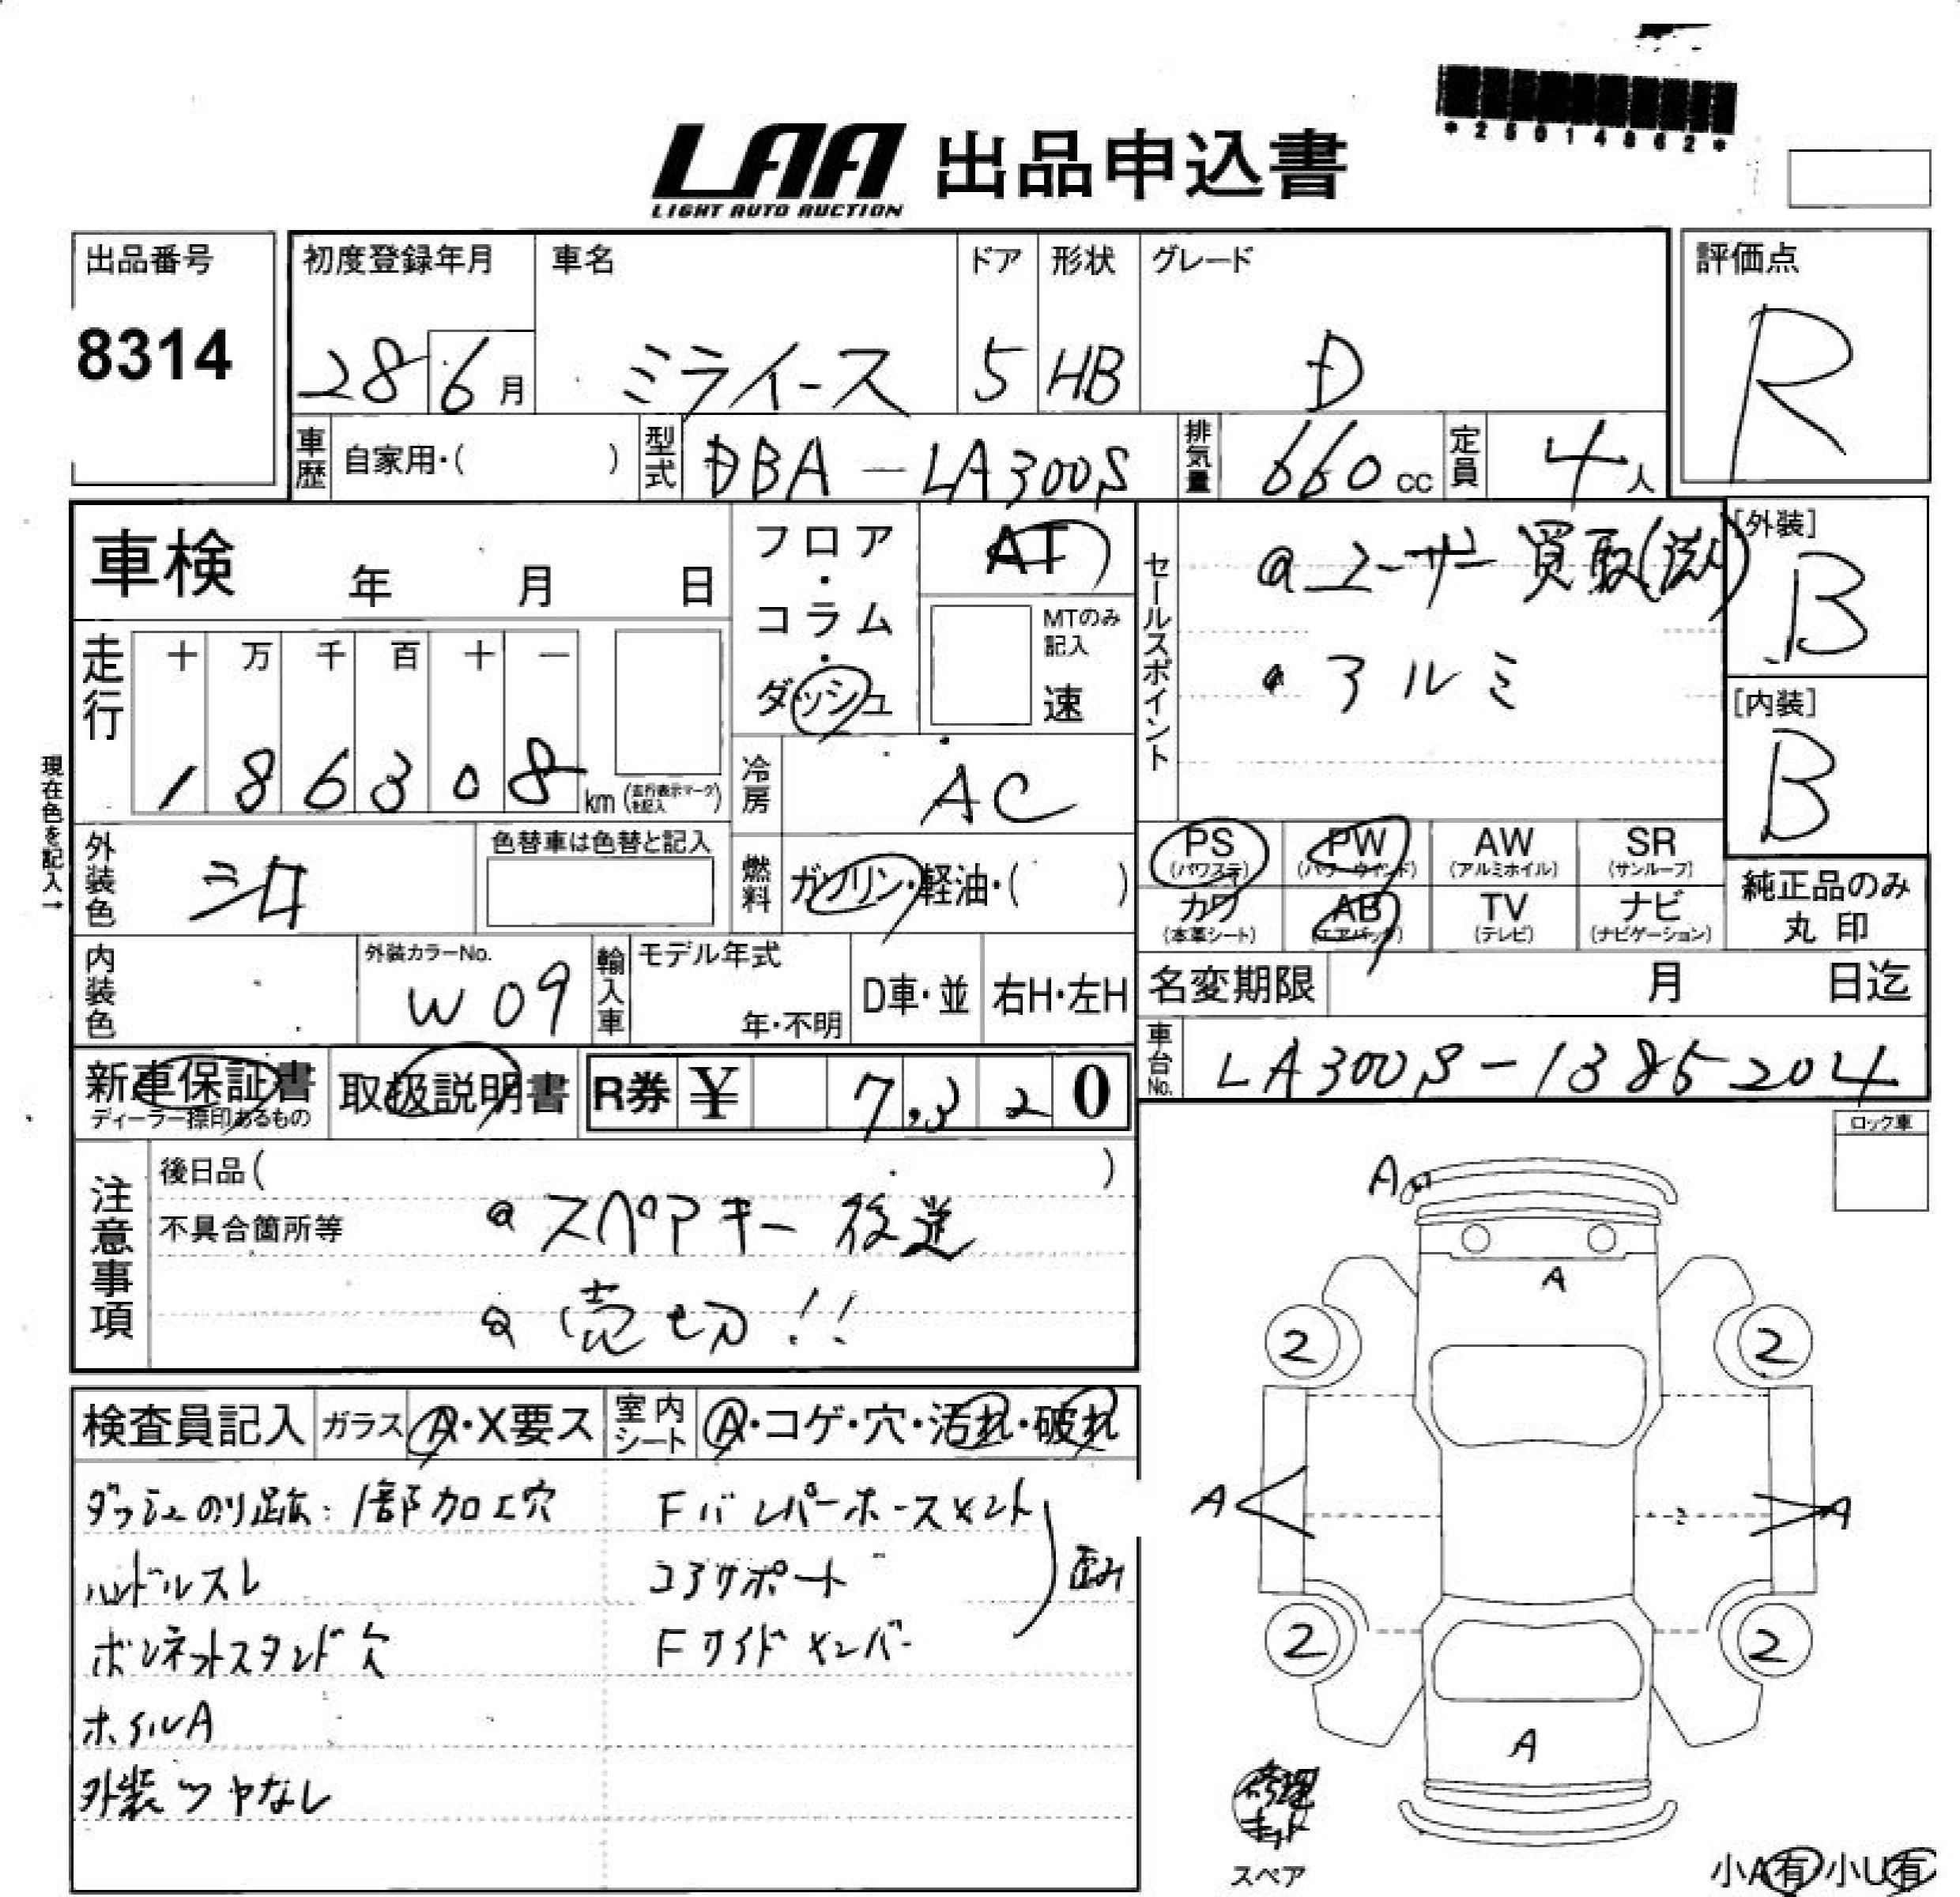 *25014862*
LAA 出品申込書
LIGHT AUTO AUCTION
出品番号
8314
初度登録年月
28 6月
車名
ミライース
ドア
5
形状
HB
グレード
D
評価点
R
車歴 自家用・( )
型式 DBA-LA300S
排気量 660cc
定員 4人
車検 年 月 日
フロア・コラム・ダッシュ
AT
MTのみ記入
速
セールスポイント
ユーザー買取(法人)
アルミ
[外装]
B
[内装]
B
走行
十 万 千 百 十 一
1 8 6 3 0 8 km (走行表示マークを記入)
現在色を記入→
冷房 AC
外装色 シロ
色替車は色替と記入
燃料 ガソリン・軽油・( )
PS (パワステ)
PW (パワーウインド)
AW (アルミホイル)
SR (サンルーフ)
カワ (本革シート)
AB (エアバック)
TV (テレビ)
ナビ (ナビゲーション)
純正品のみ丸印
内装色
外装カラーNo.
W09
輸入車
モデル年式
年・不明
D車・並
右H・左H
名変期限 月 日迄
車台No. LA300S-1385204
新車保証書
ディーラー捺印あるもの
取扱説明書
R券 ¥ 7,320
ロック車
注意事項
後日品( )
不具合箇所等
スペアキー後送
売切!!
検査員記入
ガラス A・X要ス
室内シート A・コゲ・穴・汚れ・破れ
ダッシュのり跡:1部加工穴
ハンドルスレ
ボンネットスタンド欠
ホイルA
外装ツヤなし
Fバンパーホースメント
コアサポート
Fサイドメンバー
歪み
A
A
2
2
A
A
2
2
A
修理キット
スペア
小A有 小U有